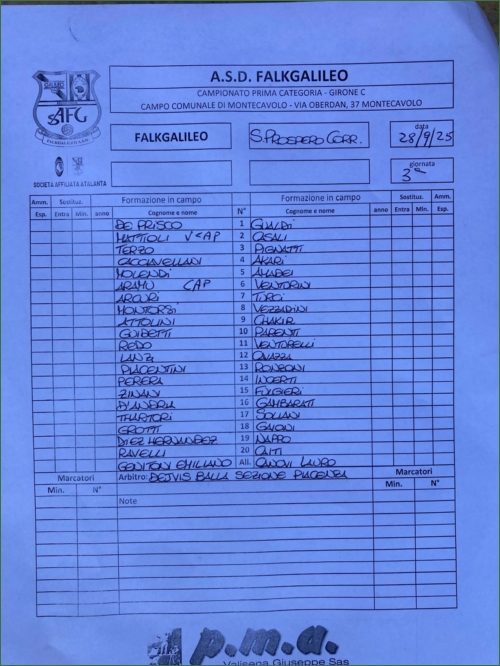 A.S.D. FALKGALILEO
CAMPIONATO PRIMA CATEGORIA - GIRONE C
CAMPO COMUNALE DI MONTECAVOLO - VIA OBERDAN, 37 MONTECAVOLO
FALKGALILEO S. PROSPERO CORR. data 28/9/25
giornata 3ª
SOCIETÀ AFFILIATA ATALANTA
Amm. Sostituz. Formazione in campo Formazione in campo Sostituz. Amm.
Esp. Entra Min. anno Cognome e nome N° Cognome e nome anno Entra Min. Esp.
DE PRISCO 1 GUALDI
MATTIOLI VCAP 2 CASALI
TERZO 3 PIGNATTI
CACCIAVELLANI 4 AKARI
MOLENDI 5 AMADEI
ARAMU CAP 6 VENTORINI
ARCURI 7 TURCI
MONTORSI 8 VEZZADINI
ATTOLINI 9 CHAKIR
GUIBETTI 10 PARENTI
REDO 11 VENTURELLI
LANZI 12 CAVAZZA
PIACENTINI 13 RONZONI
PERERA 14 INCERTI
ZINANI 15 FULGIERI
D'ANDRIA 16 GAMBARATI
TRARTORI 17 SOLIANI
GROTTI 18 GAIONI
DIEZ HERNANDEZ 19 NAPPO
RAVELLI 20 CAITI
GENITONI EMILIANO All. CANOVI LAURO
Marcatori Arbitro: DEJVIS BALLA SEZIONE PIACENZA Marcatori
Min. N° Note Min. N°
p.m.a.
Valisena Giuseppe Sas